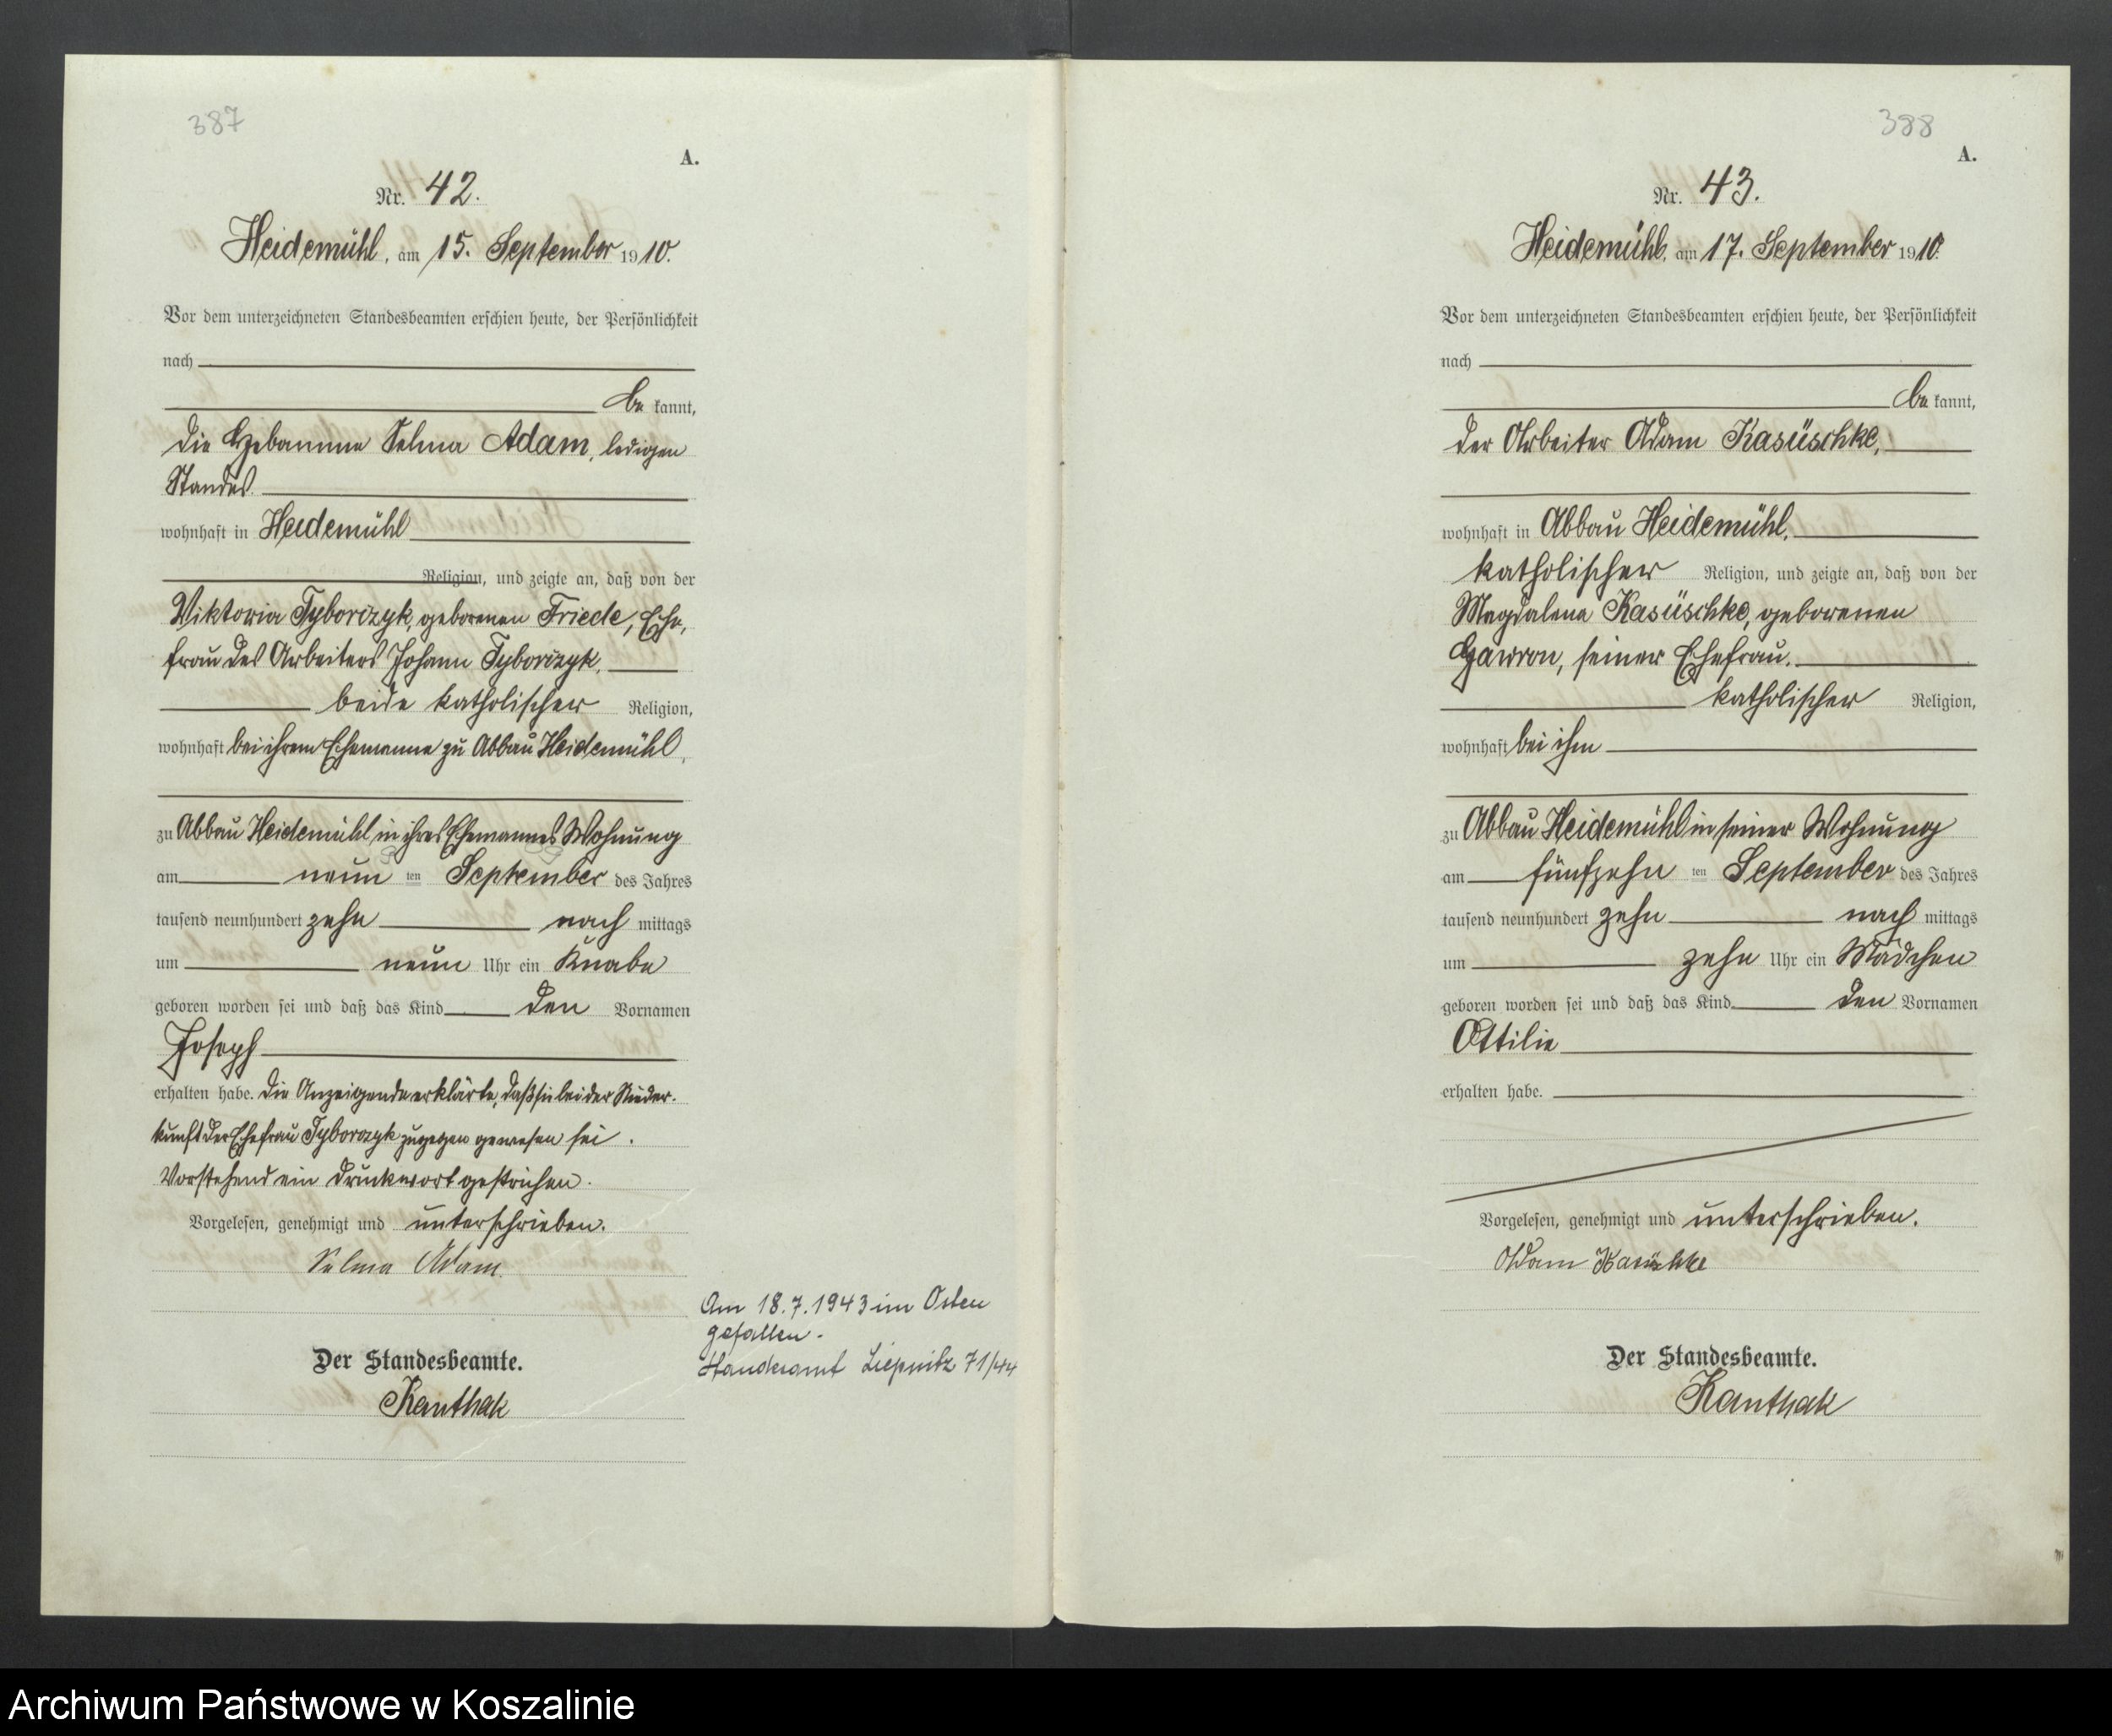 387
A.
Nr. 42.
Heidemühl, am 15. September 1910.
Vor dem unterzeichneten Standesbeamten erschien heute, der Persönlichkeit
nach
be kannt,
die Hebamme Selma Adam, ledigen
Standes
wohnhaft in Heidemühl
Religion, und zeigte an, daß von der
Viktoria Tyborczyk, geborenen Friede, Ehe,
frau des Arbeiters Johann Tyborczyk,
beide katholischer Religion,
wohnhaft bei ihrem Ehemanne zu Abbau Heidemühl,
zu Abbau Heidemühl in ihres Ehemannes Wohnung
am neun ten September des Jahres
tausend neunhundert zehn nach mittags
um neun Uhr ein Knabe
geboren worden sei und daß das Kind den Vornamen
Joseph
erhalten habe. Die Anzeigende erklärte, daß sie bei der Nieder-
kunft der Ehefrau Tyborczyk zugegen gewesen sei.
Vorstehend ein Druckwort gestrichen.
Vorgelesen, genehmigt und unterschrieben.
Selma Adam.
Der Standesbeamte.
Kanthak
Am 18.7.1943 im Osten
gefallen.
Standesamt Liepnitz 71/44
388
A.
Nr. 43.
Heidemühl, am 17. September 1910.
Vor dem unterzeichneten Standesbeamten erschien heute, der Persönlichkeit
nach
be kannt,
der Arbeiter Adam Kasüschke,
wohnhaft in Abbau Heidemühl,
katholischer Religion, und zeigte an, daß von der
Magdalena Kasüschke, geborenen
Gawron, seiner Ehefrau,
katholischer Religion,
wohnhaft bei ihm
zu Abbau Heidemühl in seiner Wohnung
am fünfzehn ten September des Jahres
tausend neunhundert zehn nach mittags
um zehn Uhr ein Mädchen
geboren worden sei und daß das Kind den Vornamen
Ottilie
erhalten habe.
Vorgelesen, genehmigt und unterschrieben.
Adam Kasüschke
Der Standesbeamte.
Kanthak
Archiwum Państwowe w Koszalinie